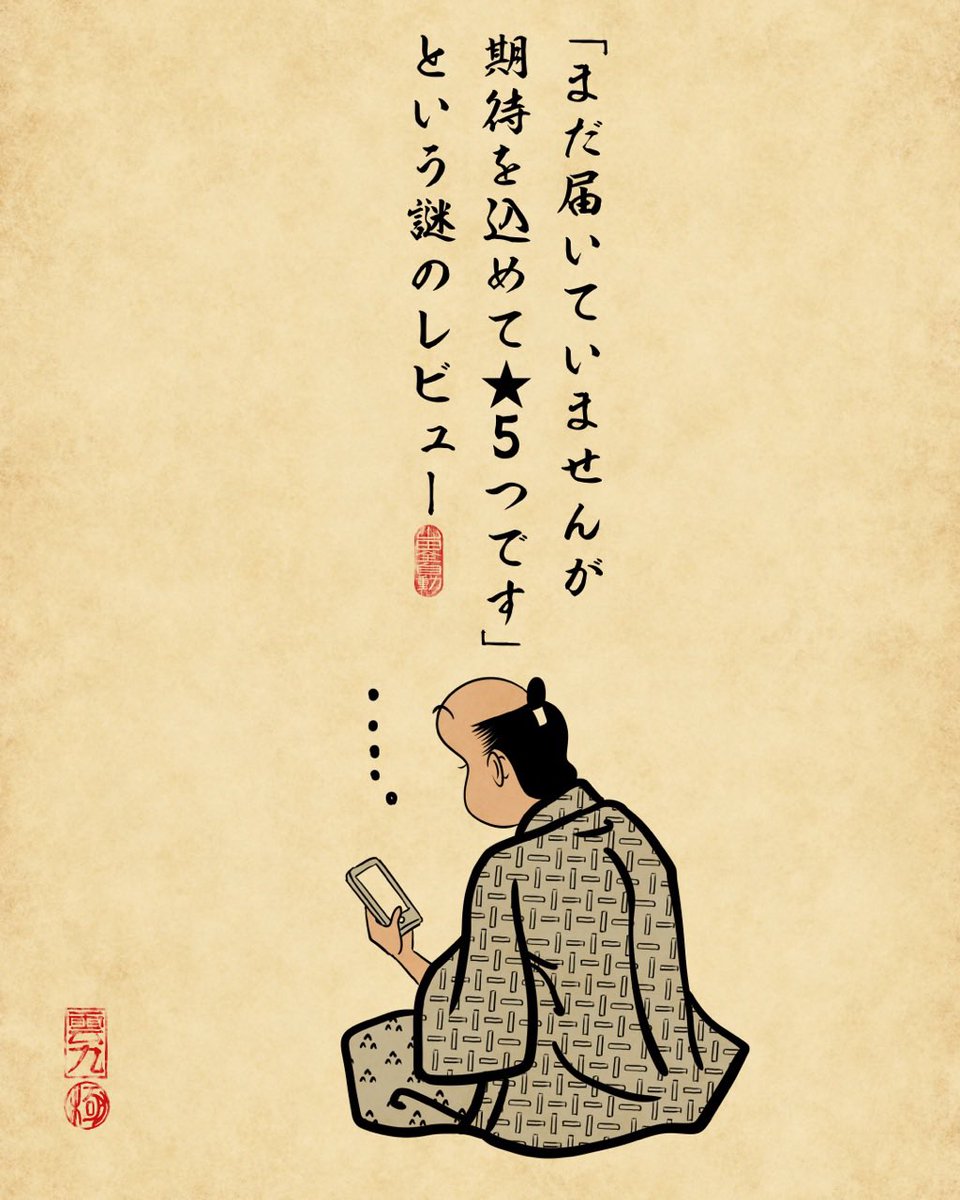 「まだ届いていませんが
期待を込めて★5つです」
という謎のレビュー
山田全自動